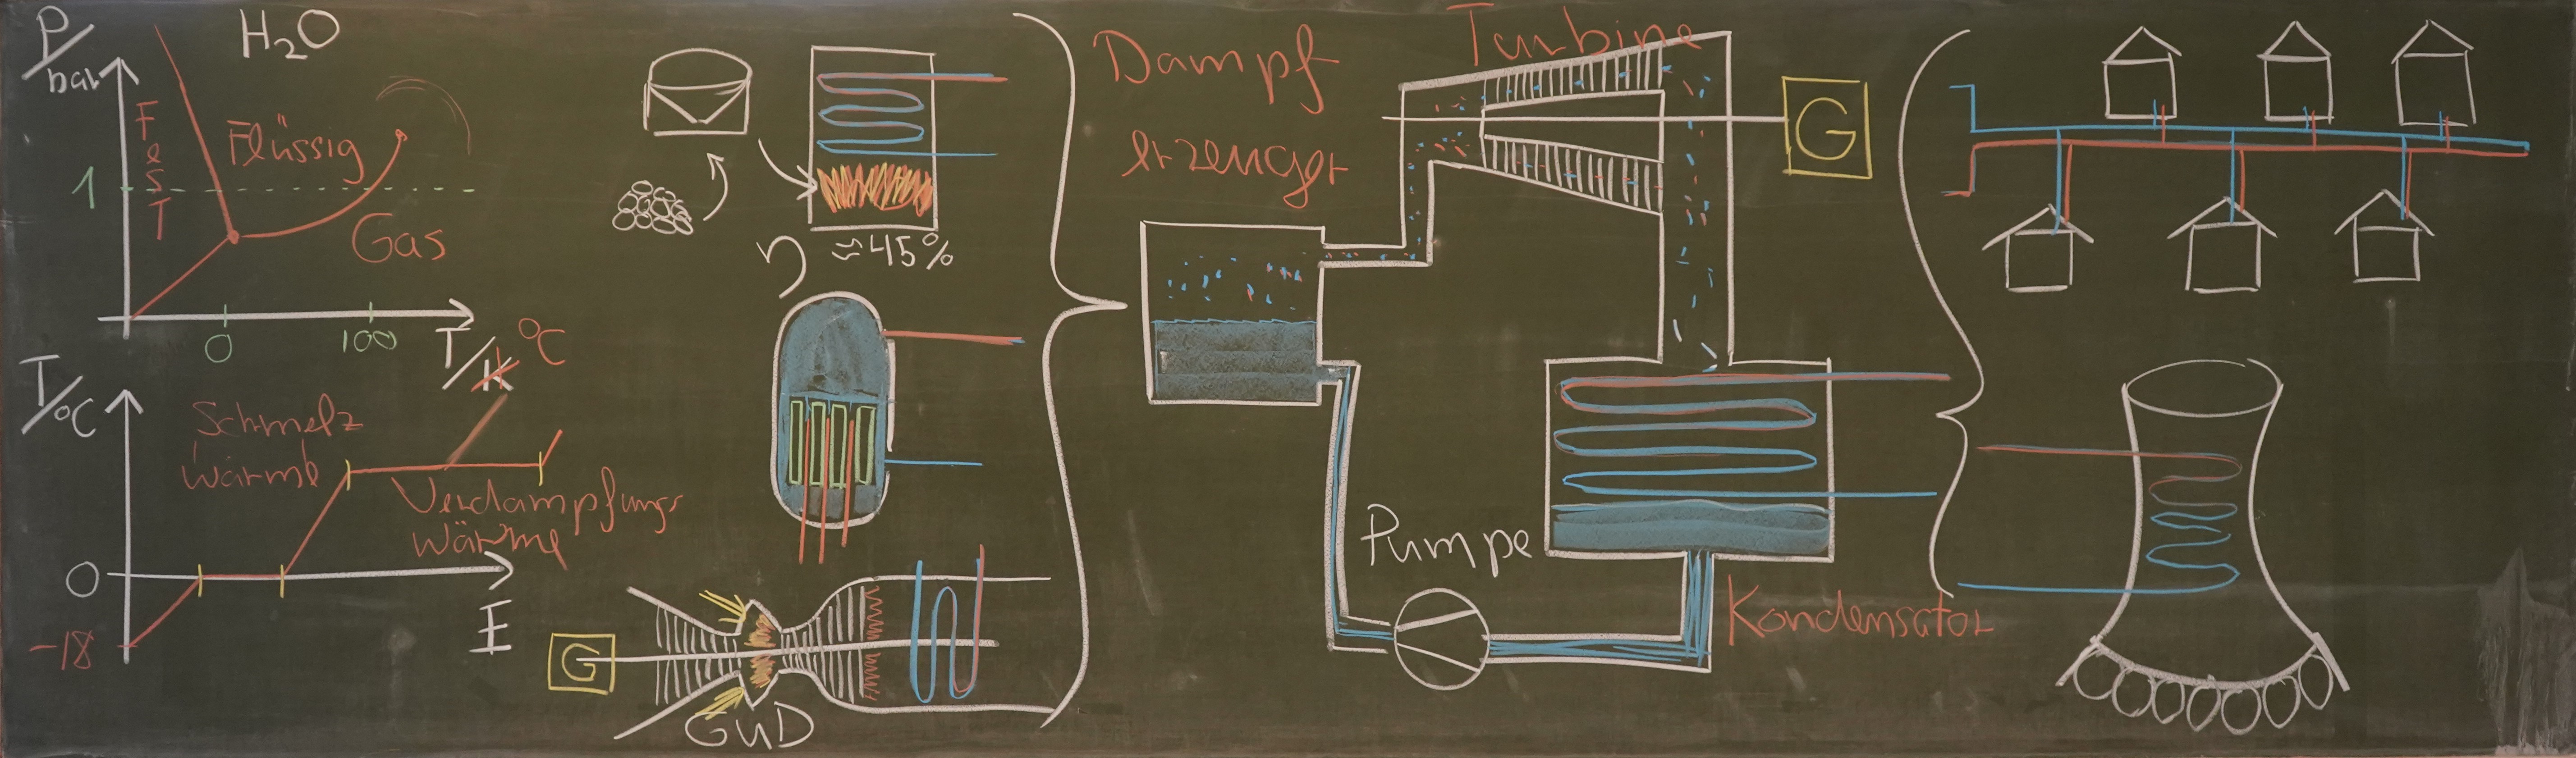 P/bar
H2O
Fest
Flüssig
1
Gas
0
100
T/K °C
T/°C
Schmelz
wärme
Verdampfungs
wärme
0
E
-18
η ≈45%
G
GUD
Dampf
erzeuger
Turbine
G
Pumpe
Kondensator